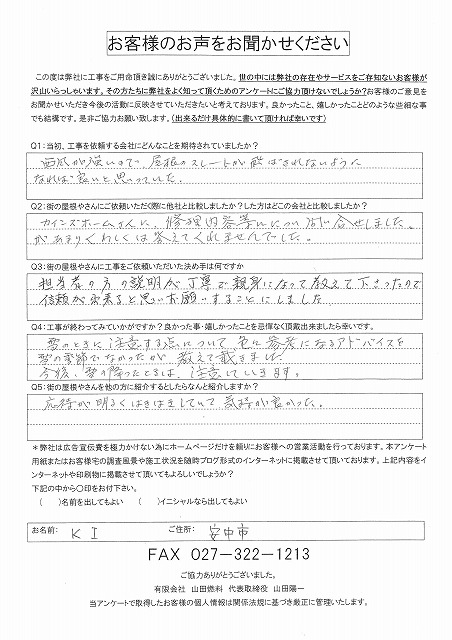 お客様のお声をお聞かせください
この度は弊社に工事をご用命頂き誠にありがとうございました。世の中には弊社の存在やサービスをご存知ないお客様が
沢山いらっしゃいます。その方たちに弊社をよく知って頂くためのアンケートにご協力頂けないでしょうか?お客様のご意見を
お聞かせいただき今後の活動に反映させていただきたいと考えております。良かったこと、嬉しかったことどのような些細な事
でも結構です。是非ご協力お願い致します。(出来るだけ具体的に書いて頂ければ幸いです)
Q1:当初、工事を依頼する会社にどんなことを期待されていましたか?
西風が強いので、屋根のスレートが飛ばされないように
なれば良いと思っていた。
Q2:街の屋根やさんにご依頼いただく際に他社と比較しましたか?した方はどこの会社と比較しましたか?
カインズホームさんに、修理内容等について問い合せしました。
があまりくわしくは答えてくれませんでした。
Q3:街の屋根やさんに工事をご依頼いただいた決め手は何ですか
担当者の方の説明が丁寧で親身になって教えて下さったので
信頼が出来ると思いお願いすることにしました。
Q4:工事が終わってみていかがですか?良かった事・嬉しかったことを忌憚なく頂戴出来ましたら幸いです。
雪のときに注意する点について、色々参考になるアドバイスを
雪の季節でなかったが、教えて戴きました。
今後、雪の降ったときは、注意していきます。
Q5:街の屋根やさんを他の方に紹介するとしたらなんと紹介しますか?
応待が明るくはきはきしていて気持が良かった。
*弊社は広告宣伝費を極力かけない為にホームページだけを頼りにお客様への営業活動を行っております。本アンケート
用紙またはお客様宅の調査風景や施工状況を随時ブログ形式のインターネットに掲載させて頂いております。上記内容をイ
ンターネットや印刷物に掲載させて頂いてもよろしいでしょうか?
下記の中から〇印をお付下さい。
( )名前を出してもよい ( )イニシャルなら出してもよい
お名前: K I ご住所: 安中市
FAX 027-322-1213
ご協力ありがとうございました。
有限会社 山田燃料 代表取締役 山田陽一
当アンケートで取得したお客様の個人情報は関係法規に基づき厳正に管理いたします。